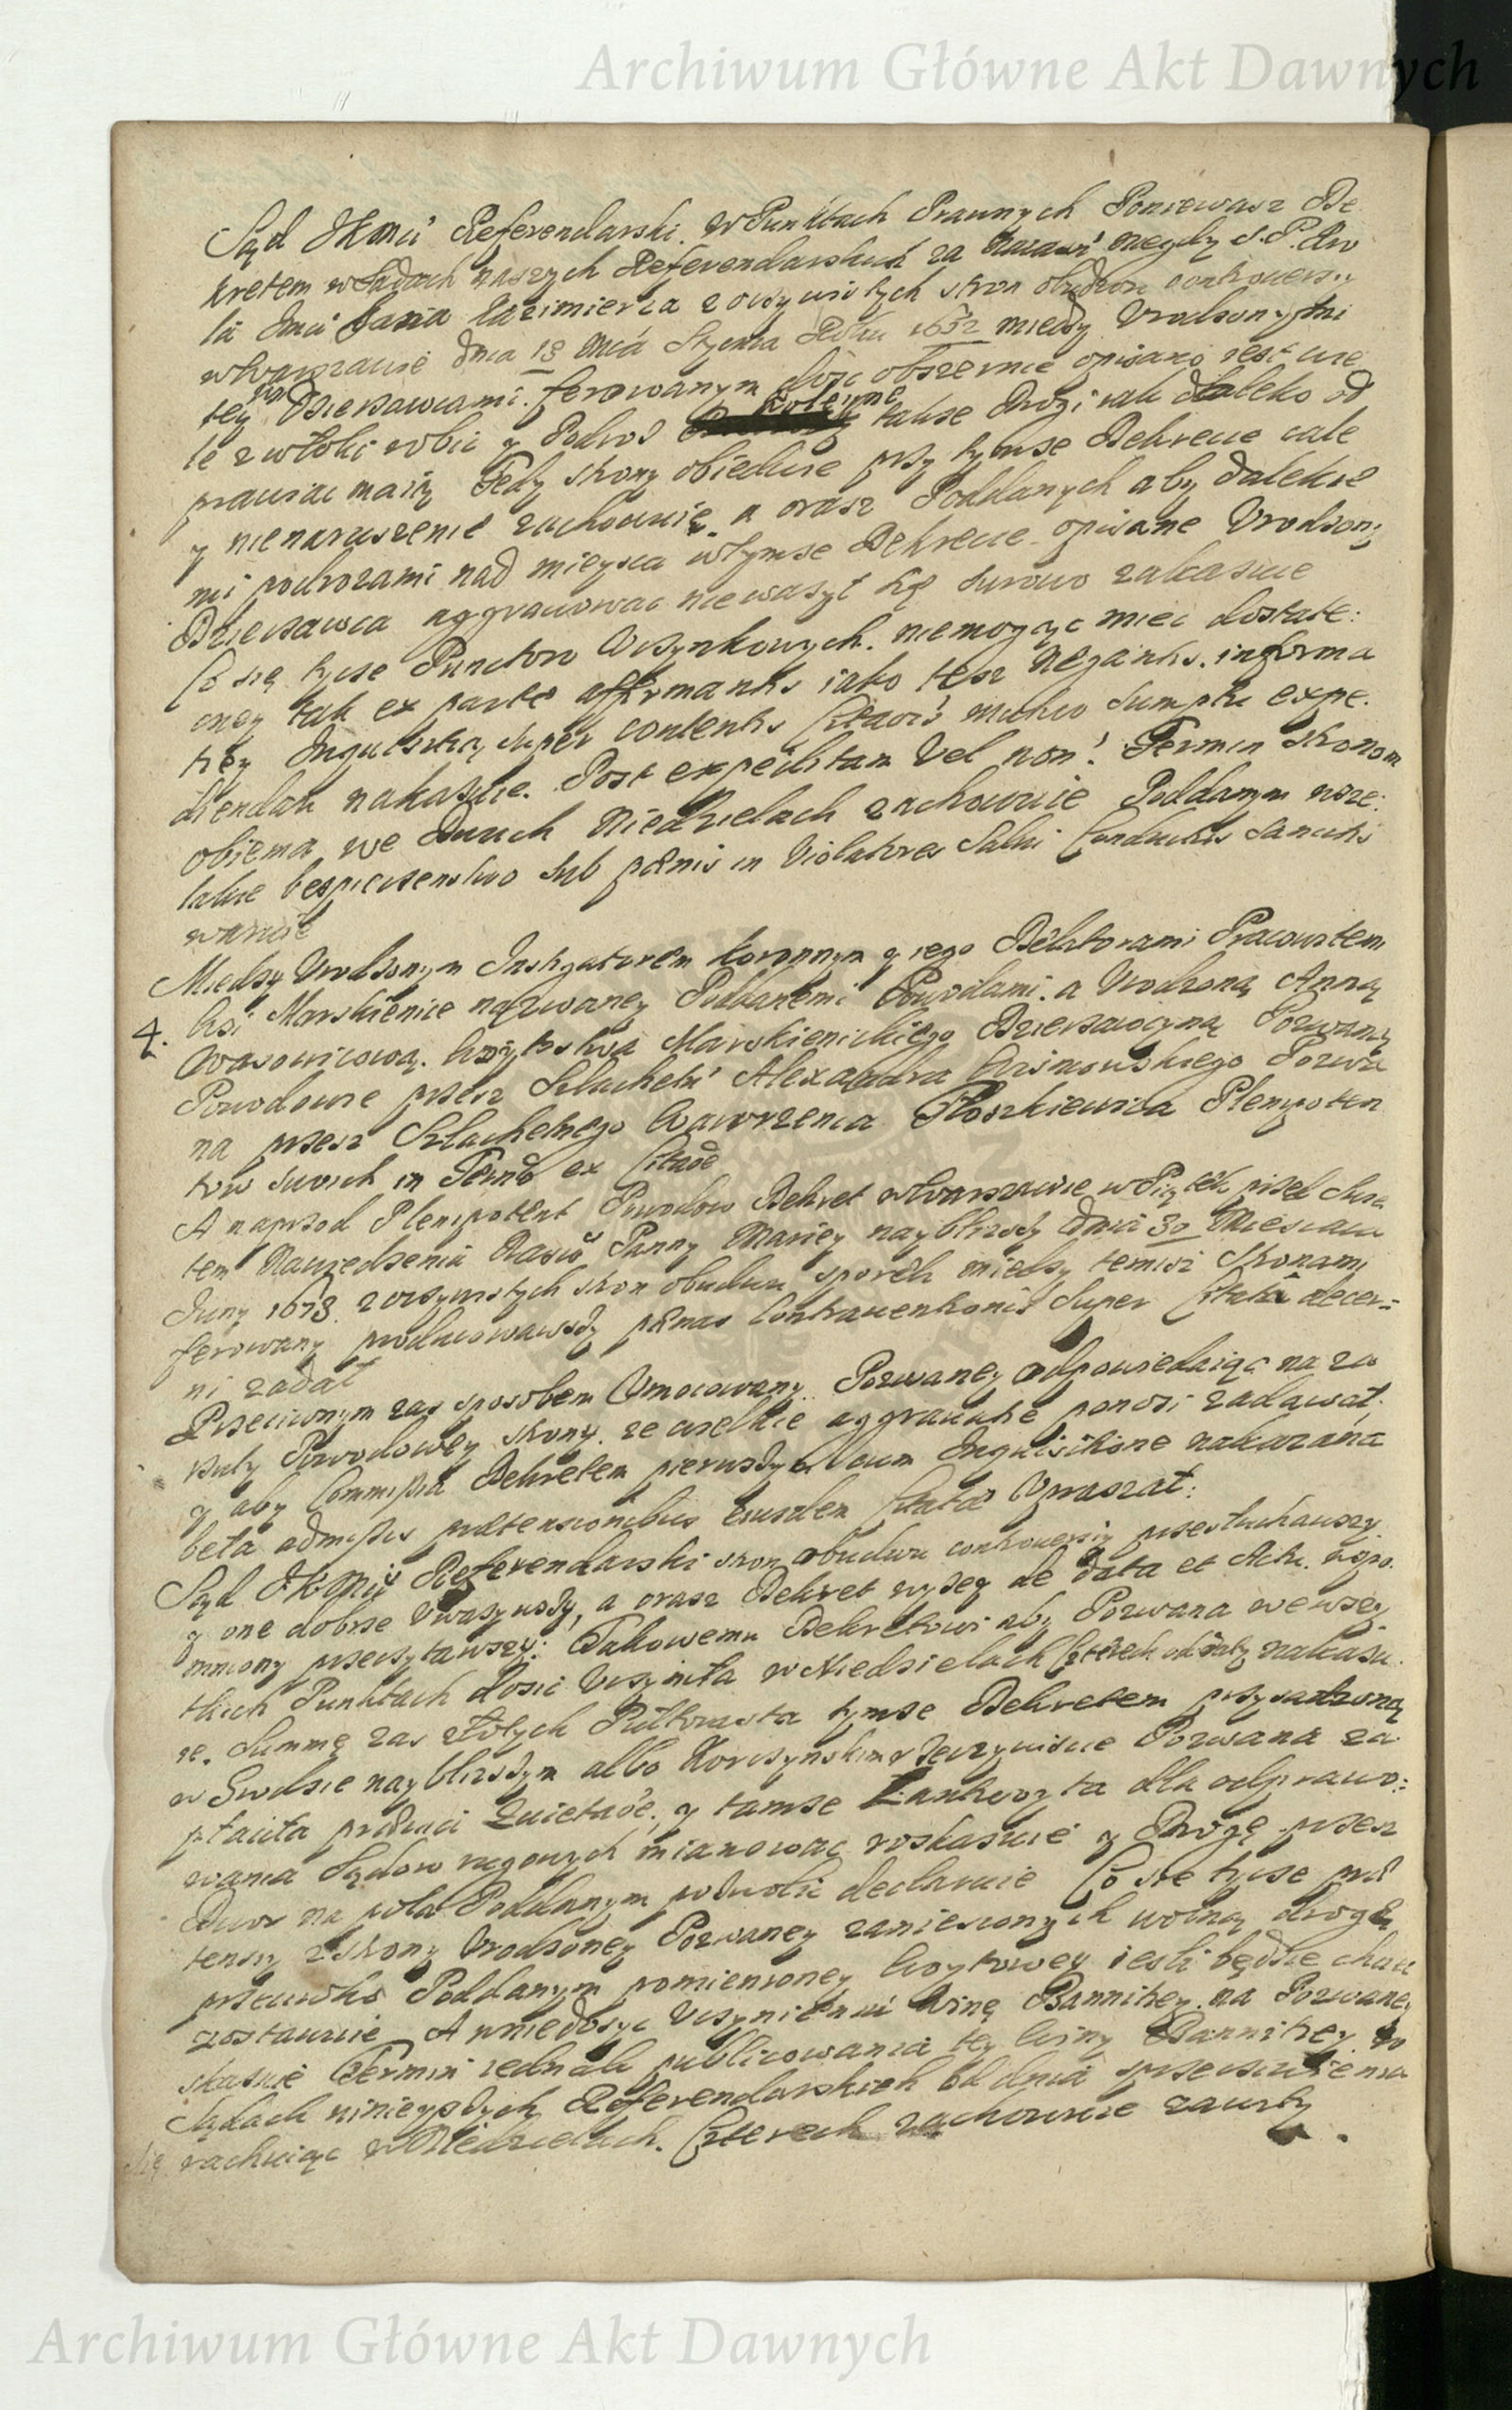 Archiwum Główne Akt Dawnych
Sąd JKMci Referendarski. w Punktach Prawnych Poniewasz De
kretem w Sądach naszych Referendarskich za s. P. Kro
la Jmci Jana Kazimierza z oczywistych stron obudwu controuersy
w Warszawie dnia 18 Mca Stycznia Roku 1652 między Vrodzonymi
tey Dzierzawcami ferowanym dość obszernie opisano iest wie
le z włoki robić y Podroż koleyne także Drogi iak daleko od
prawiac maią Tedy strony obiedwie przy tymze Dekrecie cale
y nienaruszenie zachowuie a oraz Poddanych aby dalekie
mi podrozami nad mieysca w tymze Dekrecie opisane Vrodzony
Dzierzawca aggrauowac niewazył się surowo zakazuie
Co się tycze Punctow Vczynkowych. niemogąc miec dostate:
czney tak ex parte affirmantis iako tesz negantis. informa
tiey Inquisitią super contentis Citaois mutuo sumptu expe.
diendam nakazuie. Post expeditam Vel non! Termin stronom
obiema we Dwuch Niedzielach zachowuie Poddanym nasze:
takze bespieczenstwo sub pænis in Violatores Salui Conductus sancitis
waruie
Miedzy Vrodzonym Instigatorem koronnym y iego Delatorami Pracowitemi
4. Wsi Markienice nazwaney Poddanemi Powodami. a Vrodzoną Anną
Wąsowiczową. Woytostwa Markienickiego Dzierzawczyną Pozwaną
Powodowie przez Szlachetn Alexandra Pozwa
na przez Szlachetnego Wawrzenca Ploszkiewicza Plenipoten
tow swoich in Termo ex Citaoe
A naprzod Plenipotent Powodow Dekret w Warszawie w Piątek przed Swie
tem Nawiedzenia Panny Mariey nayblizszy dnia 30 Miesiaca
Juny 1678 z oczywistych stron obudwu sporek miedzy temisz Stronami
ferowany producowawszy pænas Contrauentionis super Citata decer=
ni zadał
Przeciwnym zas sposobem Vmocowany Pozwaney odpowiedaiąc na za
rzuty Powodowey strony. ze wielkie aggrauatie ponosi zadawał.
y aby Commissia Dekretem pierwszym cum Inquisitione nakazana
beta admissis prætensionibus eiusdem Citatæ Vpraszał:
Sąd JKMci Referendarski stron obudwu controuersiy przesłuchawszy
y one dobrze Vwazywszy, a orasz Dekret wyzey de data et Actu. wspo.
mniony przeczytawszy: Takowemu Dekretowi aby Pozwana we wszy
tkich Punktach dosic Vczyniła w Niedzielach Czterech od daty nakazu
ie. Summę zas złotych Pułtorasta tymze Dekretem przysadzoną
w Grodzie nayblizszym albo Korczynskim rzeczywiscie Pozwana za
płaciła prævia Quietaoe, y tamze Lantwoyta dla odprawo:
wania Sądow rugowych mianowac roskazuie y Drogę przez
Dwor na pola Poddanym pozwolic declaruie Co sie tycze præ
tensy z strony Vrodzoney Pozwaney zaniesionych wolną drogę
przeciwko Poddanym pomienioney Woytowey iesli będzie chciec
zostawuie A wniedosyc Vczynieniu winę Bannitiey na Pozwaney
skazuie Termin iednak publicowania tey winy Bannitiey w
Sądach ninieyszych Referendarskich od dnia
rachuiąc w Niedzielach. Czterech zachowuie zawity
Archiwum Główne Akt Dawnych